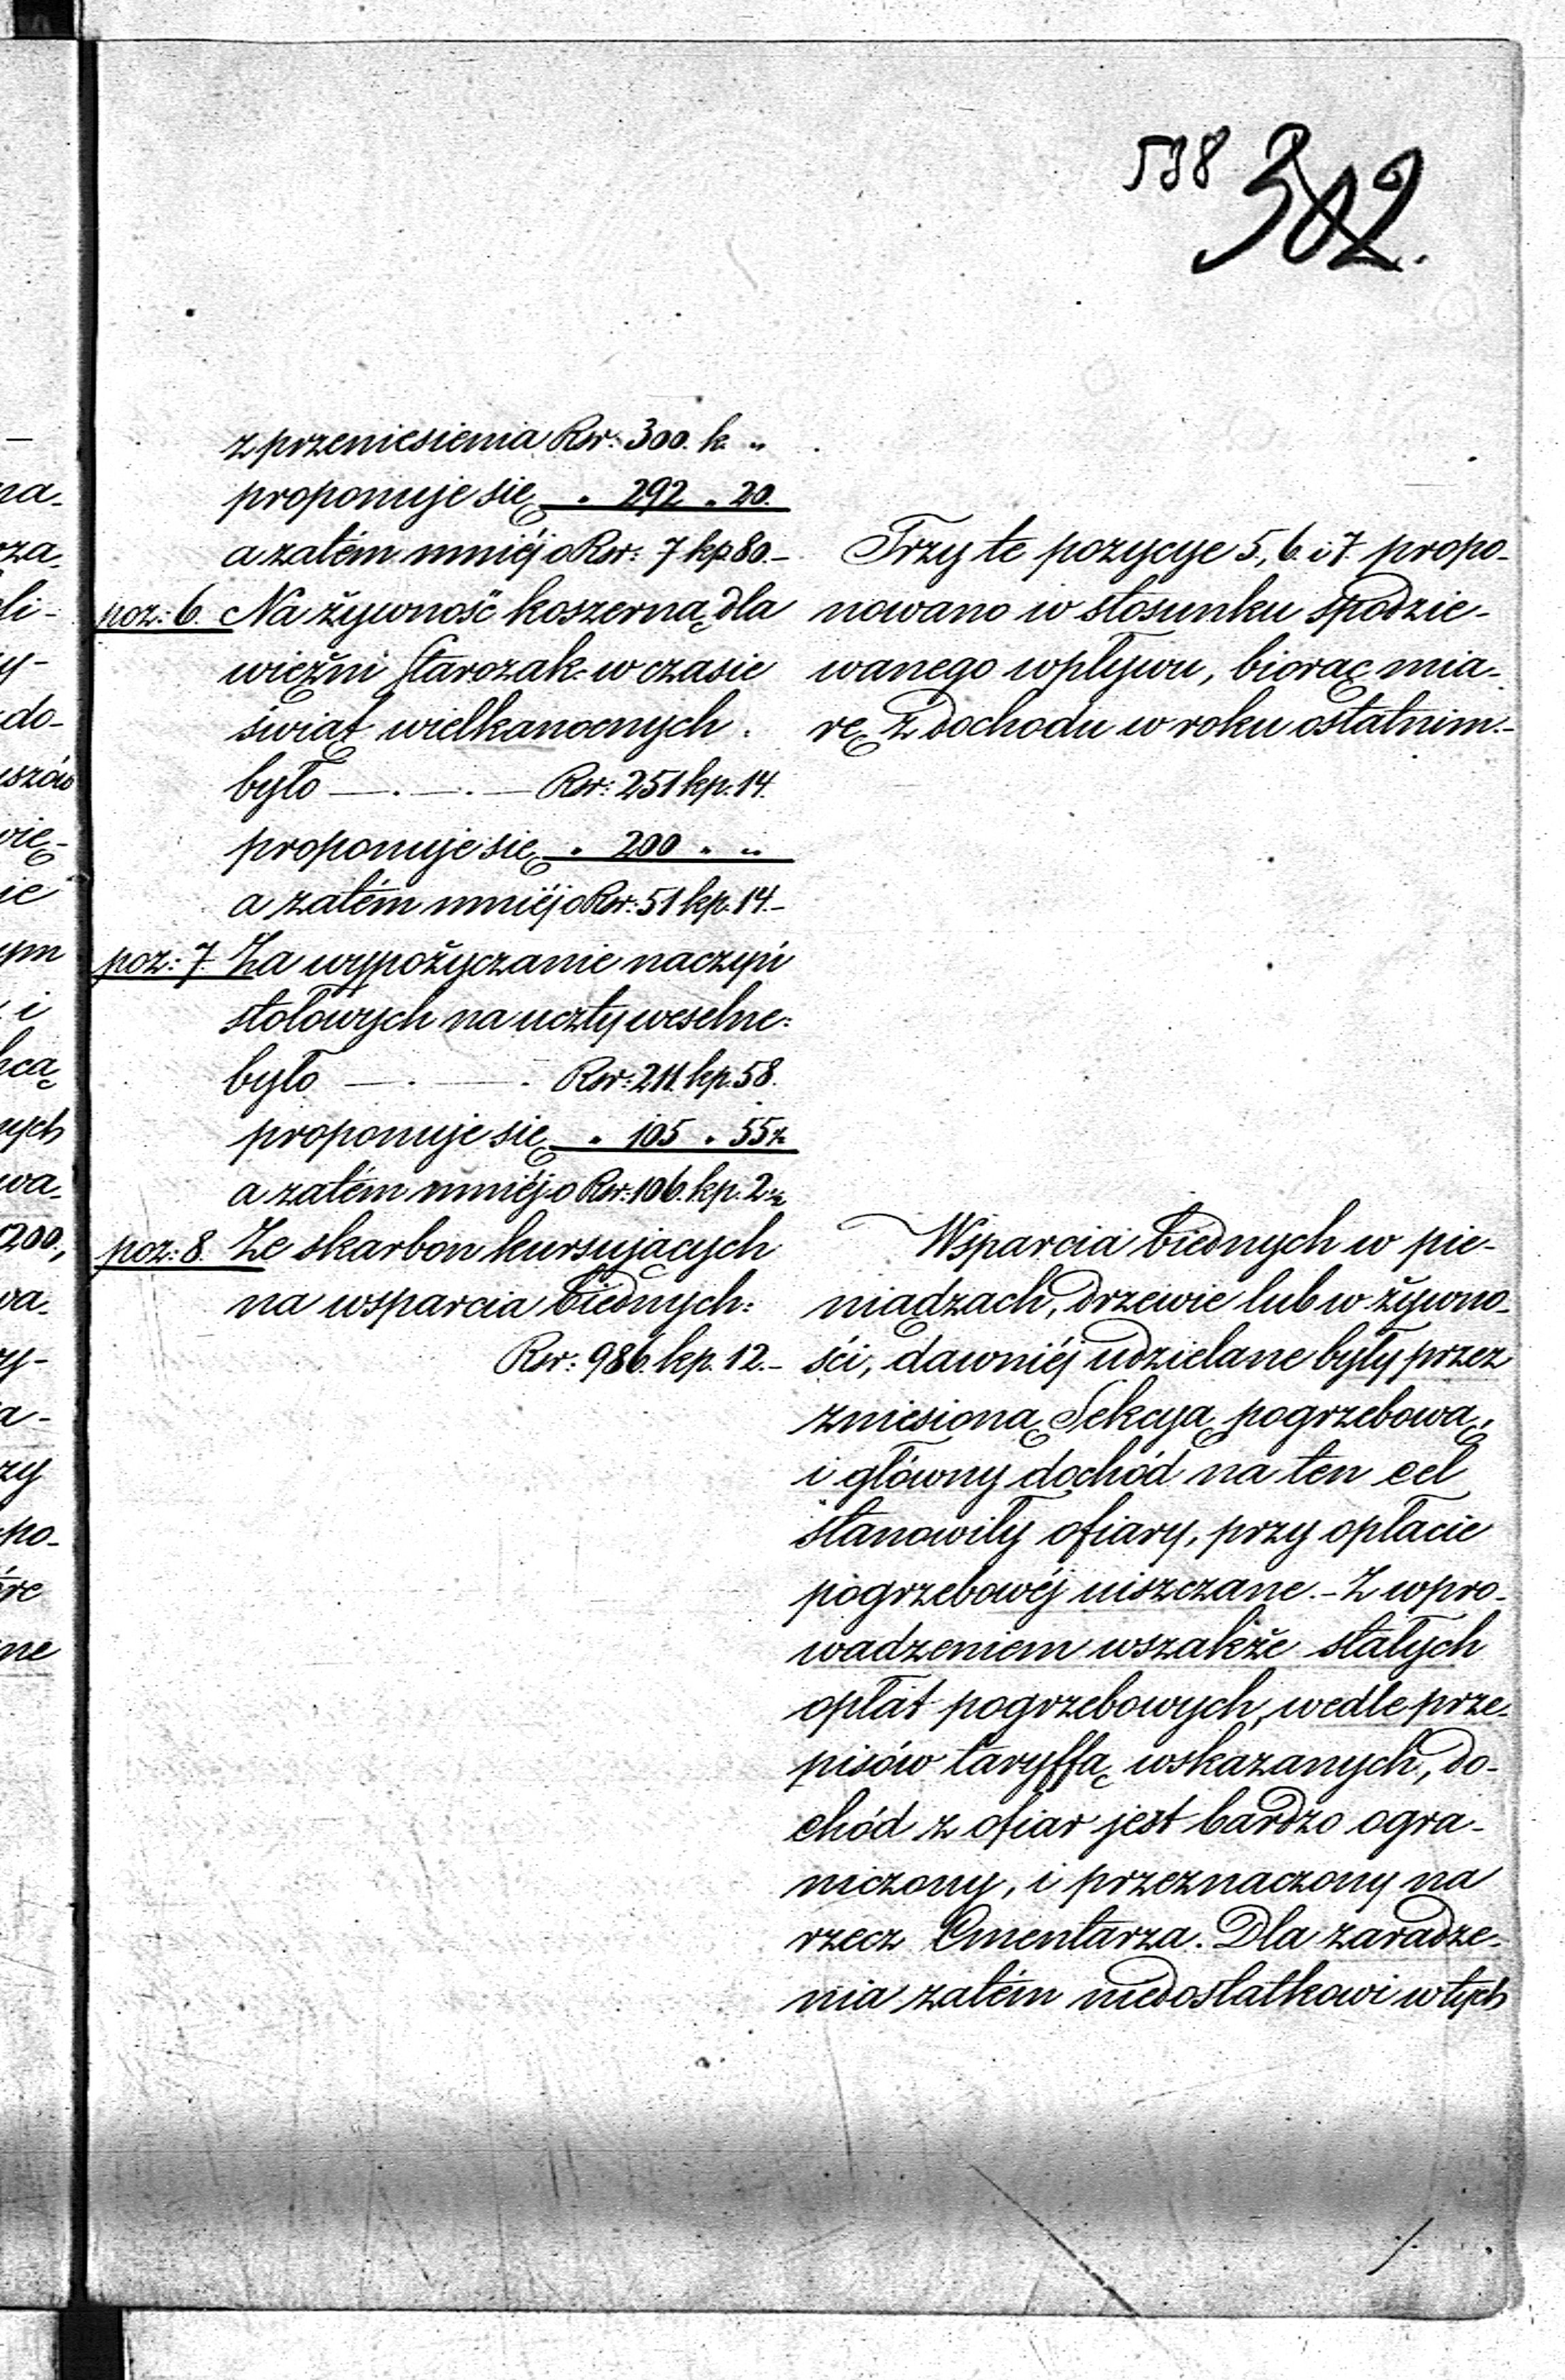 538 302.
z przeniesienia Rsr: 300. k. "
proponuje się " 292 " 20.
a zatém mniéj o Rsr: 7 kp 80.-
poz: 6. Na żywność koszerną dla
więźni Starozak: w czasie
świąt wielkanocnych:
było — . — . — Rsr: 251 kp. 14.
proponuje się " 200 " "
a zatém mniéj o Rsr: 51 kp. 14.-
poz: 7. Za wypożyczanie naczyń
stołowych na uczty weselne:
było — . — . Rsr: 211. kp. 58.
proponuje się " 105 " 55½
a zatém mniéj o Rsr: 106. kp. 2½
poz: 8. Ze skarbon kursujących
na wsparcia biednych:
Rsr: 986. kp. 12.-
Trzy te pozycye 5, 6. i 7. propo-
nowano w stosunku spodzie-
wanego wpływu, biorąc mia-
rę z dochodu w roku ostatnim.-
Wsparcia biednych w pie-
niądzach, drzewie lub w żywno-
ści, dawniéj udzielane były przez
zniesioną Sekcyą pogrzebową,
i główny dochód na ten cel
stanowiły ofiary, przy opłacie
pogrzebowéj uiszczane.- Z wpro-
wadzeniem wszakże stałych
opłat pogrzebowych, wedle prze-
pisów taryffą wskazanych, do-
chód z ofiar jest bardzo ogra-
niczony, i przeznaczony na
rzecz Cmentarza. Dla zaradze-
nia zatém niedostatkowi w tych